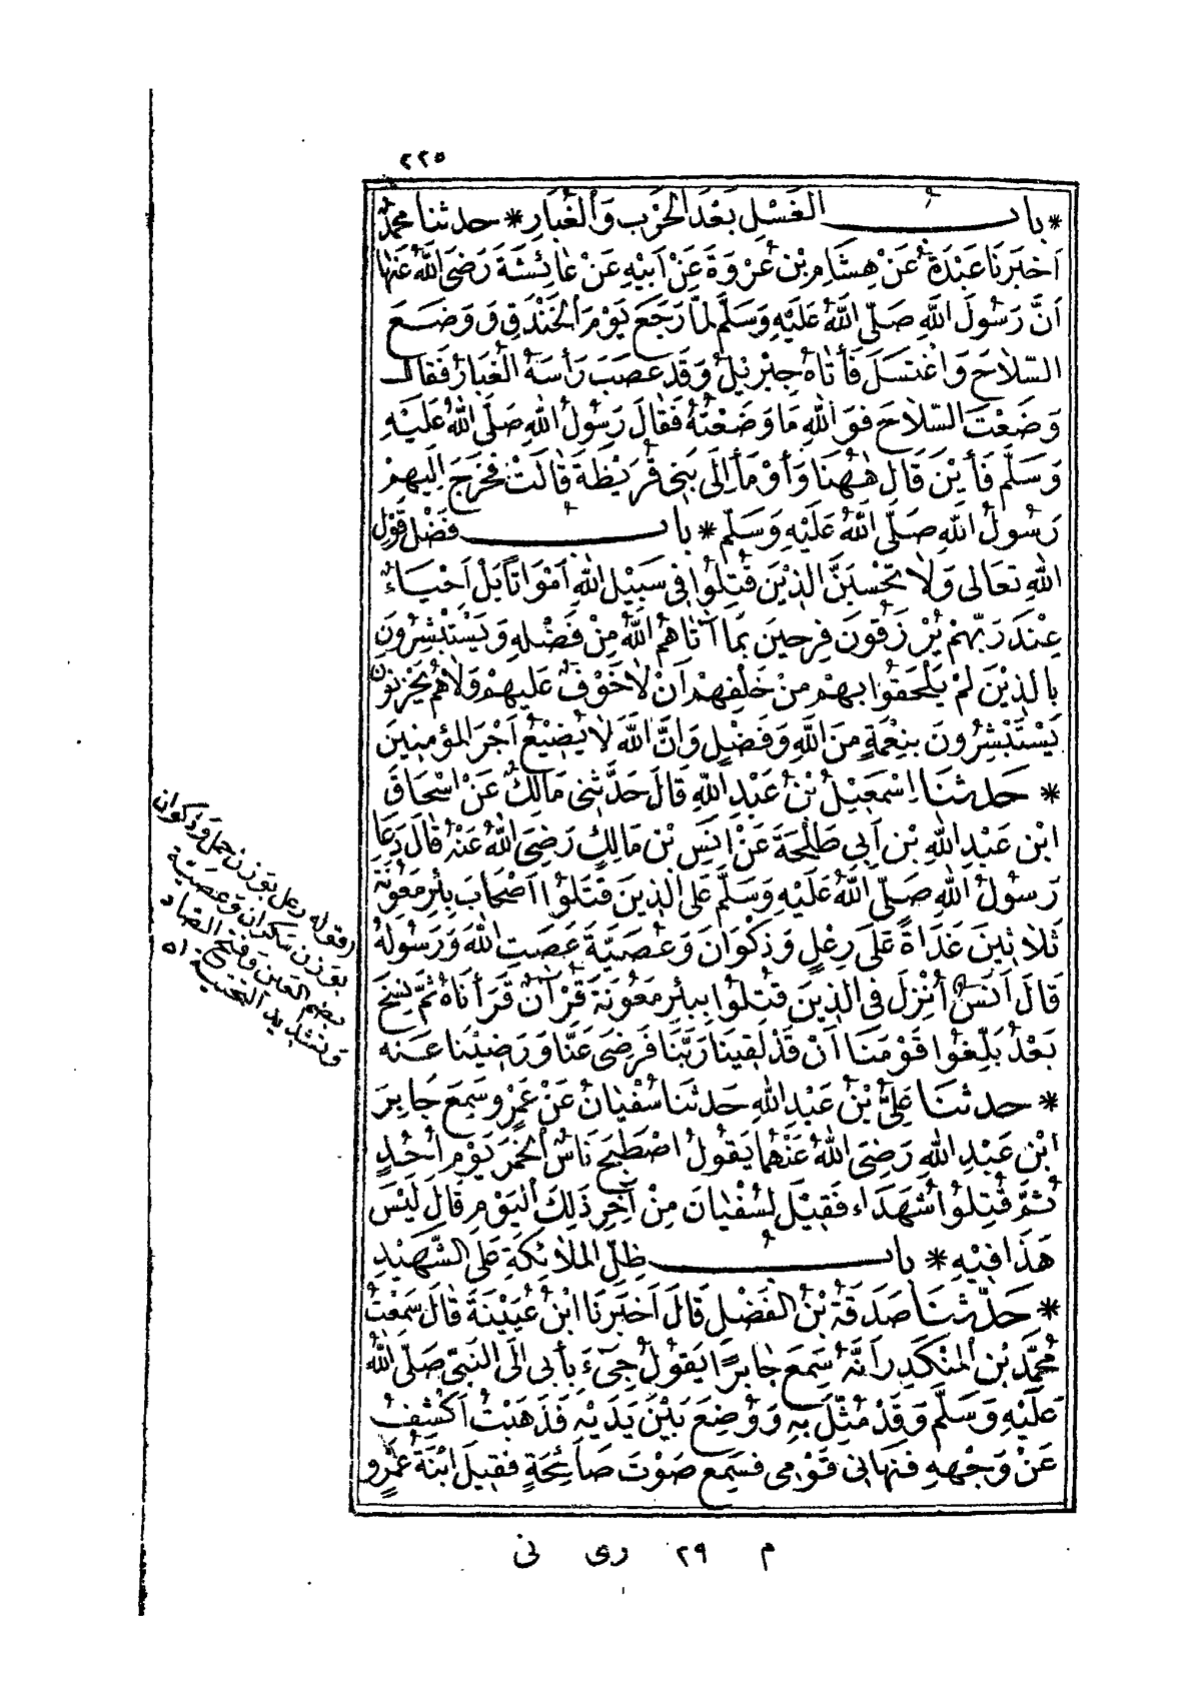 ٢٢٥
* بابُ الغَسْلِ بَعْدَ الحَرْبِ وَالْغُبَارِ * حدثنا محمدٌ
اَخْبَرنَا عَبْدَةُ عَنْ هِشَامِ بْنِ عُرْوَةَ عَنْ اَبيْهِ عَنْ عَائِشَةَ رَضِىَ اللهُ عَنْهَا
اَنَّ رَسُولَ اللهِ صَلّى اللهُ عَلَيْهِ وَسَلَّم لمَّا رَجَعَ يَوْمَ الْخَنْدَقِ وَوَضَعَ
السّلاَحَ وَاغْتَسَلَ فَأتَاهُ جِبْرِيْلُ وَقَدْ عَصَبَ رَأْسَهُ الْغُبَارُ فَقَالَ
وَضَعْتَ السّلاَحَ فوَ اللهِ مَا وَضَعْتُهُ فَقَالَ رَسُولُ اللهِ صَلَّى اللهُ عَلَيْهِ
وَسَلَّم فَأيْنَ قَالَ هٰهُنَا وَأَوْمَأ اِلَى بَنِى قُرَيْظَةَ قَالَتْ فَخَرَجَ اِلَيهِمْ
رَسُولُ اللهِ صَلّى اللهُ عَلَيْهِ وَسَلّم * بابُ فَضْلِ قَوْلِ
اللهِ تعَالى وَلاَ تَحْسبَنَّ الذِيْنَ قُتِلُوا فى سَبِيْلِ اللهِ اَمْوَاتًا بَلْ اَحْيَاءٌ
عِنْدَ رَبّهِمْ يُرْزَقُونَ فرِحِينَ بمَا آتَاهُمُ اللهُ مِنْ فَضْلِهِ وَيَسْتَبْشِرُونَ
بالذِيْنَ لَمْ يَلْحَقُوا بهِمْ مِنْ خَلْفِهِمْ اَنْ لاَ خَوْفٌ عَلَيهِمْ وَلاَ هُمْ يَحْزَنُونَ
يَسْتَبْشِرُونَ بنِعْمَةٍ مِنَ اللهِ وَفَضْلٍ وَانَّ اللهَ لاَ يُضِيْعُ اَجْرَ المؤمِنِينَ
* حَدثنَا اِسْمَعِيْلُ بْنُ عَبْدِ اللهِ قَالَ حَدَّثنِى مَالِكٌ عَنْ اِسْحَاقَ
ابْنِ عَبْدِ اللهِ بْنِ اَبى طَلْحَةَ عَنْ اَنَسِ بْنِ مَالِكٍ رَضِىَ اللهُ عَنْهُ قَالَ دَعَا
رَسُولُ اللهِ صَلّى اللهُ عَلَيْهِ وَسَلَّم عَلَى الذِينَ قَتَلُوا اَصْحَابَ بِئْرِ مَعُونَةَ
ثَلاَثِينَ غَدَاةً عَلَى رِعْلٍ وَذَكْوَانَ وَعُصَيَّةَ عَصَتِ اللهَ وَرَسُولَهُ
قَالَ اَنَسٌ اُنْزِلَ فى الذِينَ قُتِلُوا ببِئْرِ مَعُونَةَ قُرْآنٌ قَرَأنَاهُ ثُمَّ نُسِخَ
بَعْدُ بَلّغُوا قَوْمَنَا اَنْ قَدْ لَقِينَا رَبَّنَا فَرَضِىَ عَنَّا وَرَضِيْنَا عَنه
* حدثنَا عَلِىُّ بْنُ عَبْدِ اللهِ حَدثنَا سُفْيَانُ عَنْ عَمْرٍو سَمِعَ جَابِرَ
ابْنَ عَبْدِ اللهِ رَضِىَ اللهُ عَنْهُمَا يَقُولُ اصْطَبَحَ نَاسٌ الْخَمْرَ يَوْمَ اُحُدٍ
ثُمَّ قُتِلُوا شُهَدَاء فَقِيْلَ لسُفْيَانَ مِنْ آخِرِ ذَلِكَ الْيَوْمِ قَالَ لَيْسَ
هَذَا فِيْهِ * بابُ ظِلِّ الملاَئكَةِ عَلَى الشّهِيْدِ
* حَدّثنَا صَدَقَةُ بْنُ الفَضْلِ قَالَ اَخْبَرنَا ابْنُ عُيَيْنَةَ قَالَ سَمِعْتُ
مُحَمَّدَ بْنَ الْمُنْكَدِرِ اَنّهُ سَمِعَ جَابِرًا يَقُولُ جِىءَ بأبى اِلَى النَبىّ صَلّى اللهُ
عَلَيْهِ وَسَلَّم وَقَدْ مُثِّلَ بهِ وَوُضِعَ بَيْنَ يَدَيْهِ فَذَهَبْتُ اَكْشِفُ
عَنْ وَجْههِ فنَهَانِى قَوْمِى فسَمِعَ صَوْتَ صَائِحَةٍ فقِيلَ ابْنَةُ عَمْرٍو
(قوله رعل بوزن حمل وذكوان
بوزن سكران وعصية
بضم العين وفتح الصاد
وتشديد التحتية اه
م ٢٩ رى نى